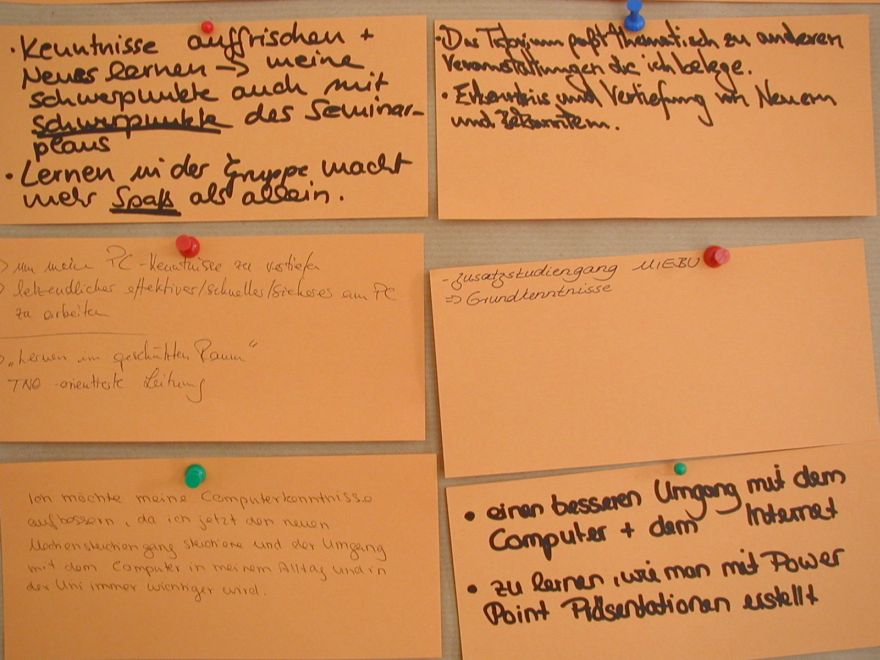 • Kenntnisse auffrischen +
Neues lernen -> meine
schwerpunkte auch mit
schwerpunkte des Seminar-
plans
• Lernen in der Gruppe macht
mehr Spaß als allein.
• Das Tutorium paßt thematisch zu anderen
Veranstaltungen die ich belege.
• Erkenntnis und Vertiefung von Neuem
und Bekanntem.
> um meine PC-Kenntnisse zu vertiefen
> letzendliches effektives/schnelles/sicheres am PC
zu arbeiten
> "Lernen im geschützten Raum"
TNO-orientierte Leitung
- Zusatzstudiengang MEBU
=> Grundkenntnisse
Ich möchte meine Computerkenntnisse
aufbessern, da ich jetzt den neuen
studiere und der Umgang
mit dem Computer in meinem Alltag und in
der Uni immer wichtiger wird.
• einen besseren Umgang mit dem
Computer + dem Internet
• zu lernen, wie man mit Power
Point Präsentationen erstellt